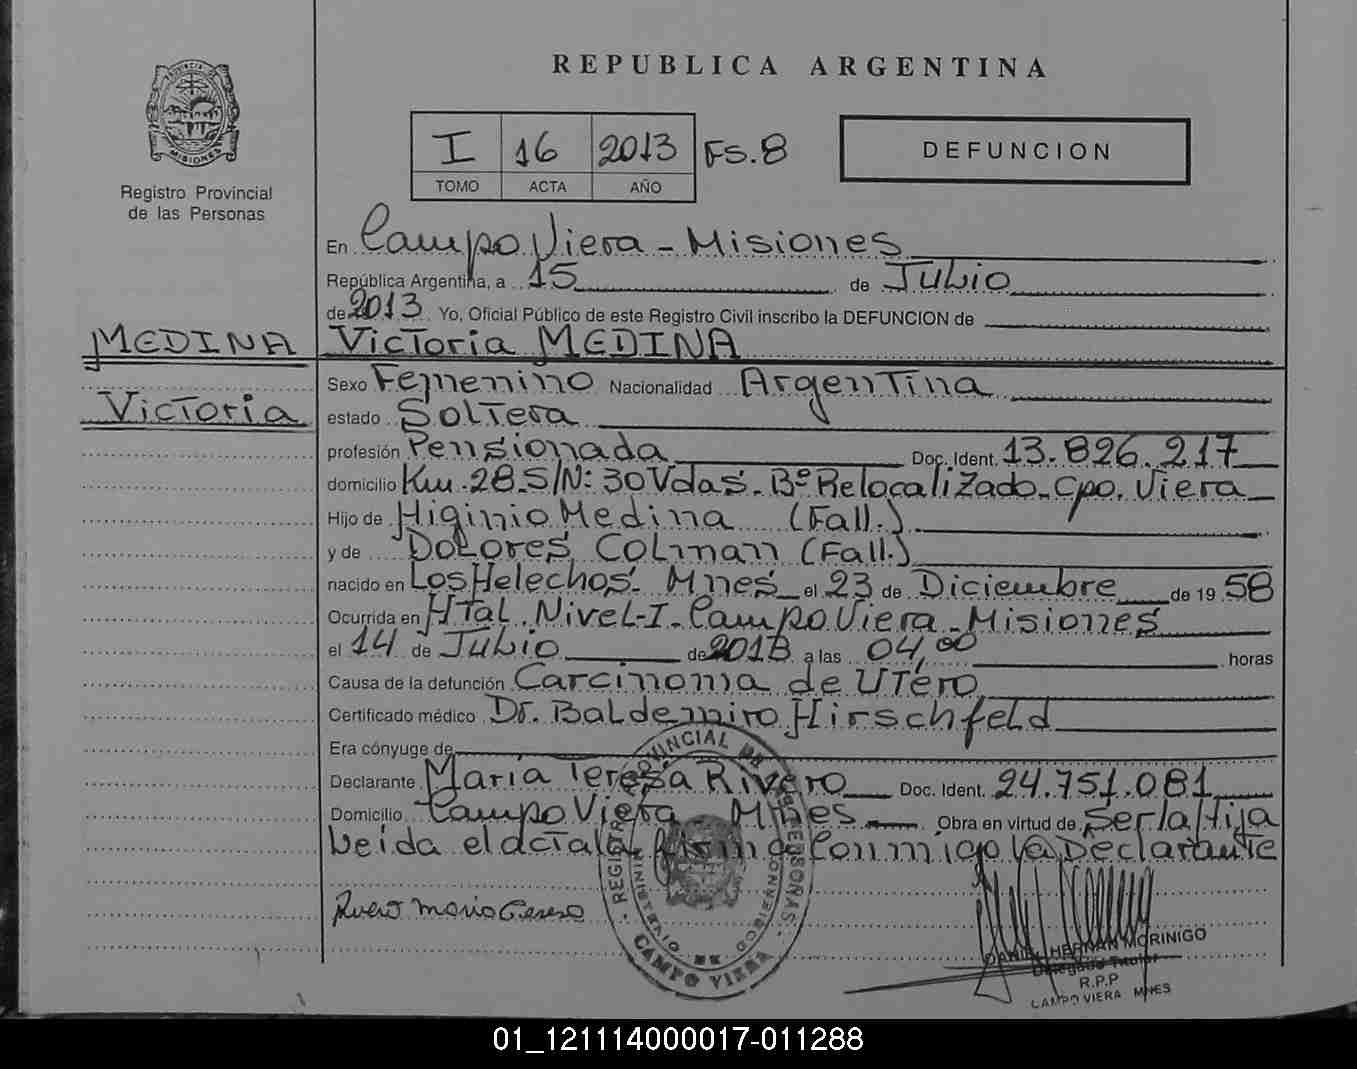 REPUBLICA ARGENTINA
PROVINCIA DE MISIONES
Registro Provincial
de las Personas
I 16 2013 FS.8
TOMO ACTA AÑO
DEFUNCION
En Campo Viera - Misiones
República Argentina, a 15 de Julio
de 2013 Yo, Oficial Público de este Registro Civil inscribo la DEFUNCION de
MEDINA
Victoria MEDINA
Victoria
Sexo Femenino Nacionalidad Argentina
estado Soltera
profesión Pensionada Doc. Ident. 13.826.217
domicilio Km. 28 S/N: 30 Vdas. Bº Relocalizado - Cpo. Viera
Hijo de Higinio Medina (Fall.)
y de DoLores Colman (Fall.)
nacido en Los Helechos - Mnes el 23 de Diciembre de 19 58
Ocurrida en HTal. Nivel-I - Campo Viera - Misiones
el 14 de Julio de 2013 a las 04,00 horas
Causa de la defunción Carcinoma de UTero
Certificado médico Dr. Baldemiro Hirschfeld
Era cónyuge de
Declarante María Teresa Rivero Doc. Ident. 24.751.081
Domicilio Campo Viera Mnes Obra en virtud de Ser la Hija
Leida el acta la firma conmigo la Declarante
REGISTRO PROVINCIAL DE LAS PERSONAS
CAMPO VIERA
Rivero Maria Teresa
DANIEL HERNAN MORINIGO
Delegado Titular
R.P.P
CAMPO VIERA MNES
01_121114000017-011288